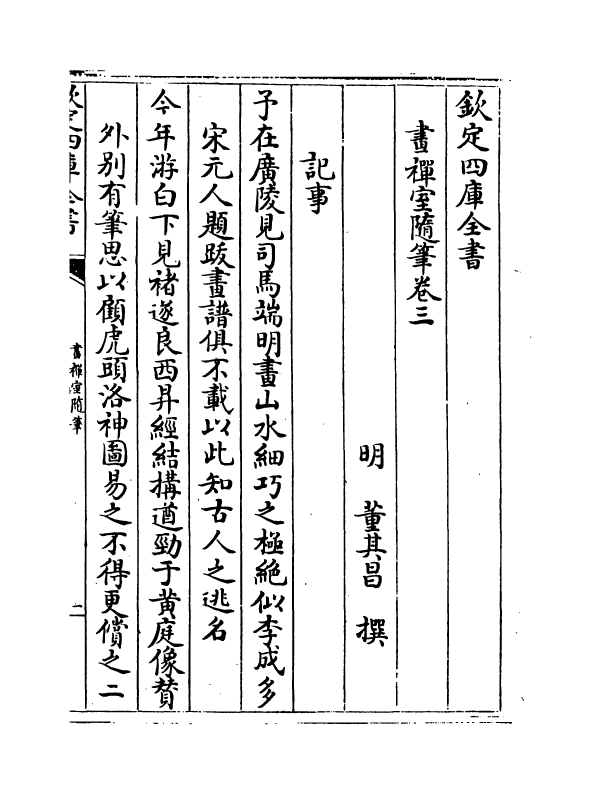 欽定四庫全書
畫禪室隨筆卷三
明 董其昌 撰
記事
予在廣陵見司馬端明畫山水細巧之極絶似李成多
宋元人題跋畫譜俱不載以此知古人之逃名
今年游白下見褚遂良西昇經結構遒勁于黄庭像贊
外别有筆思以顧虎頭洛神圖易之不得更償之二
欽定四庫全書
畫禪室隨筆
二